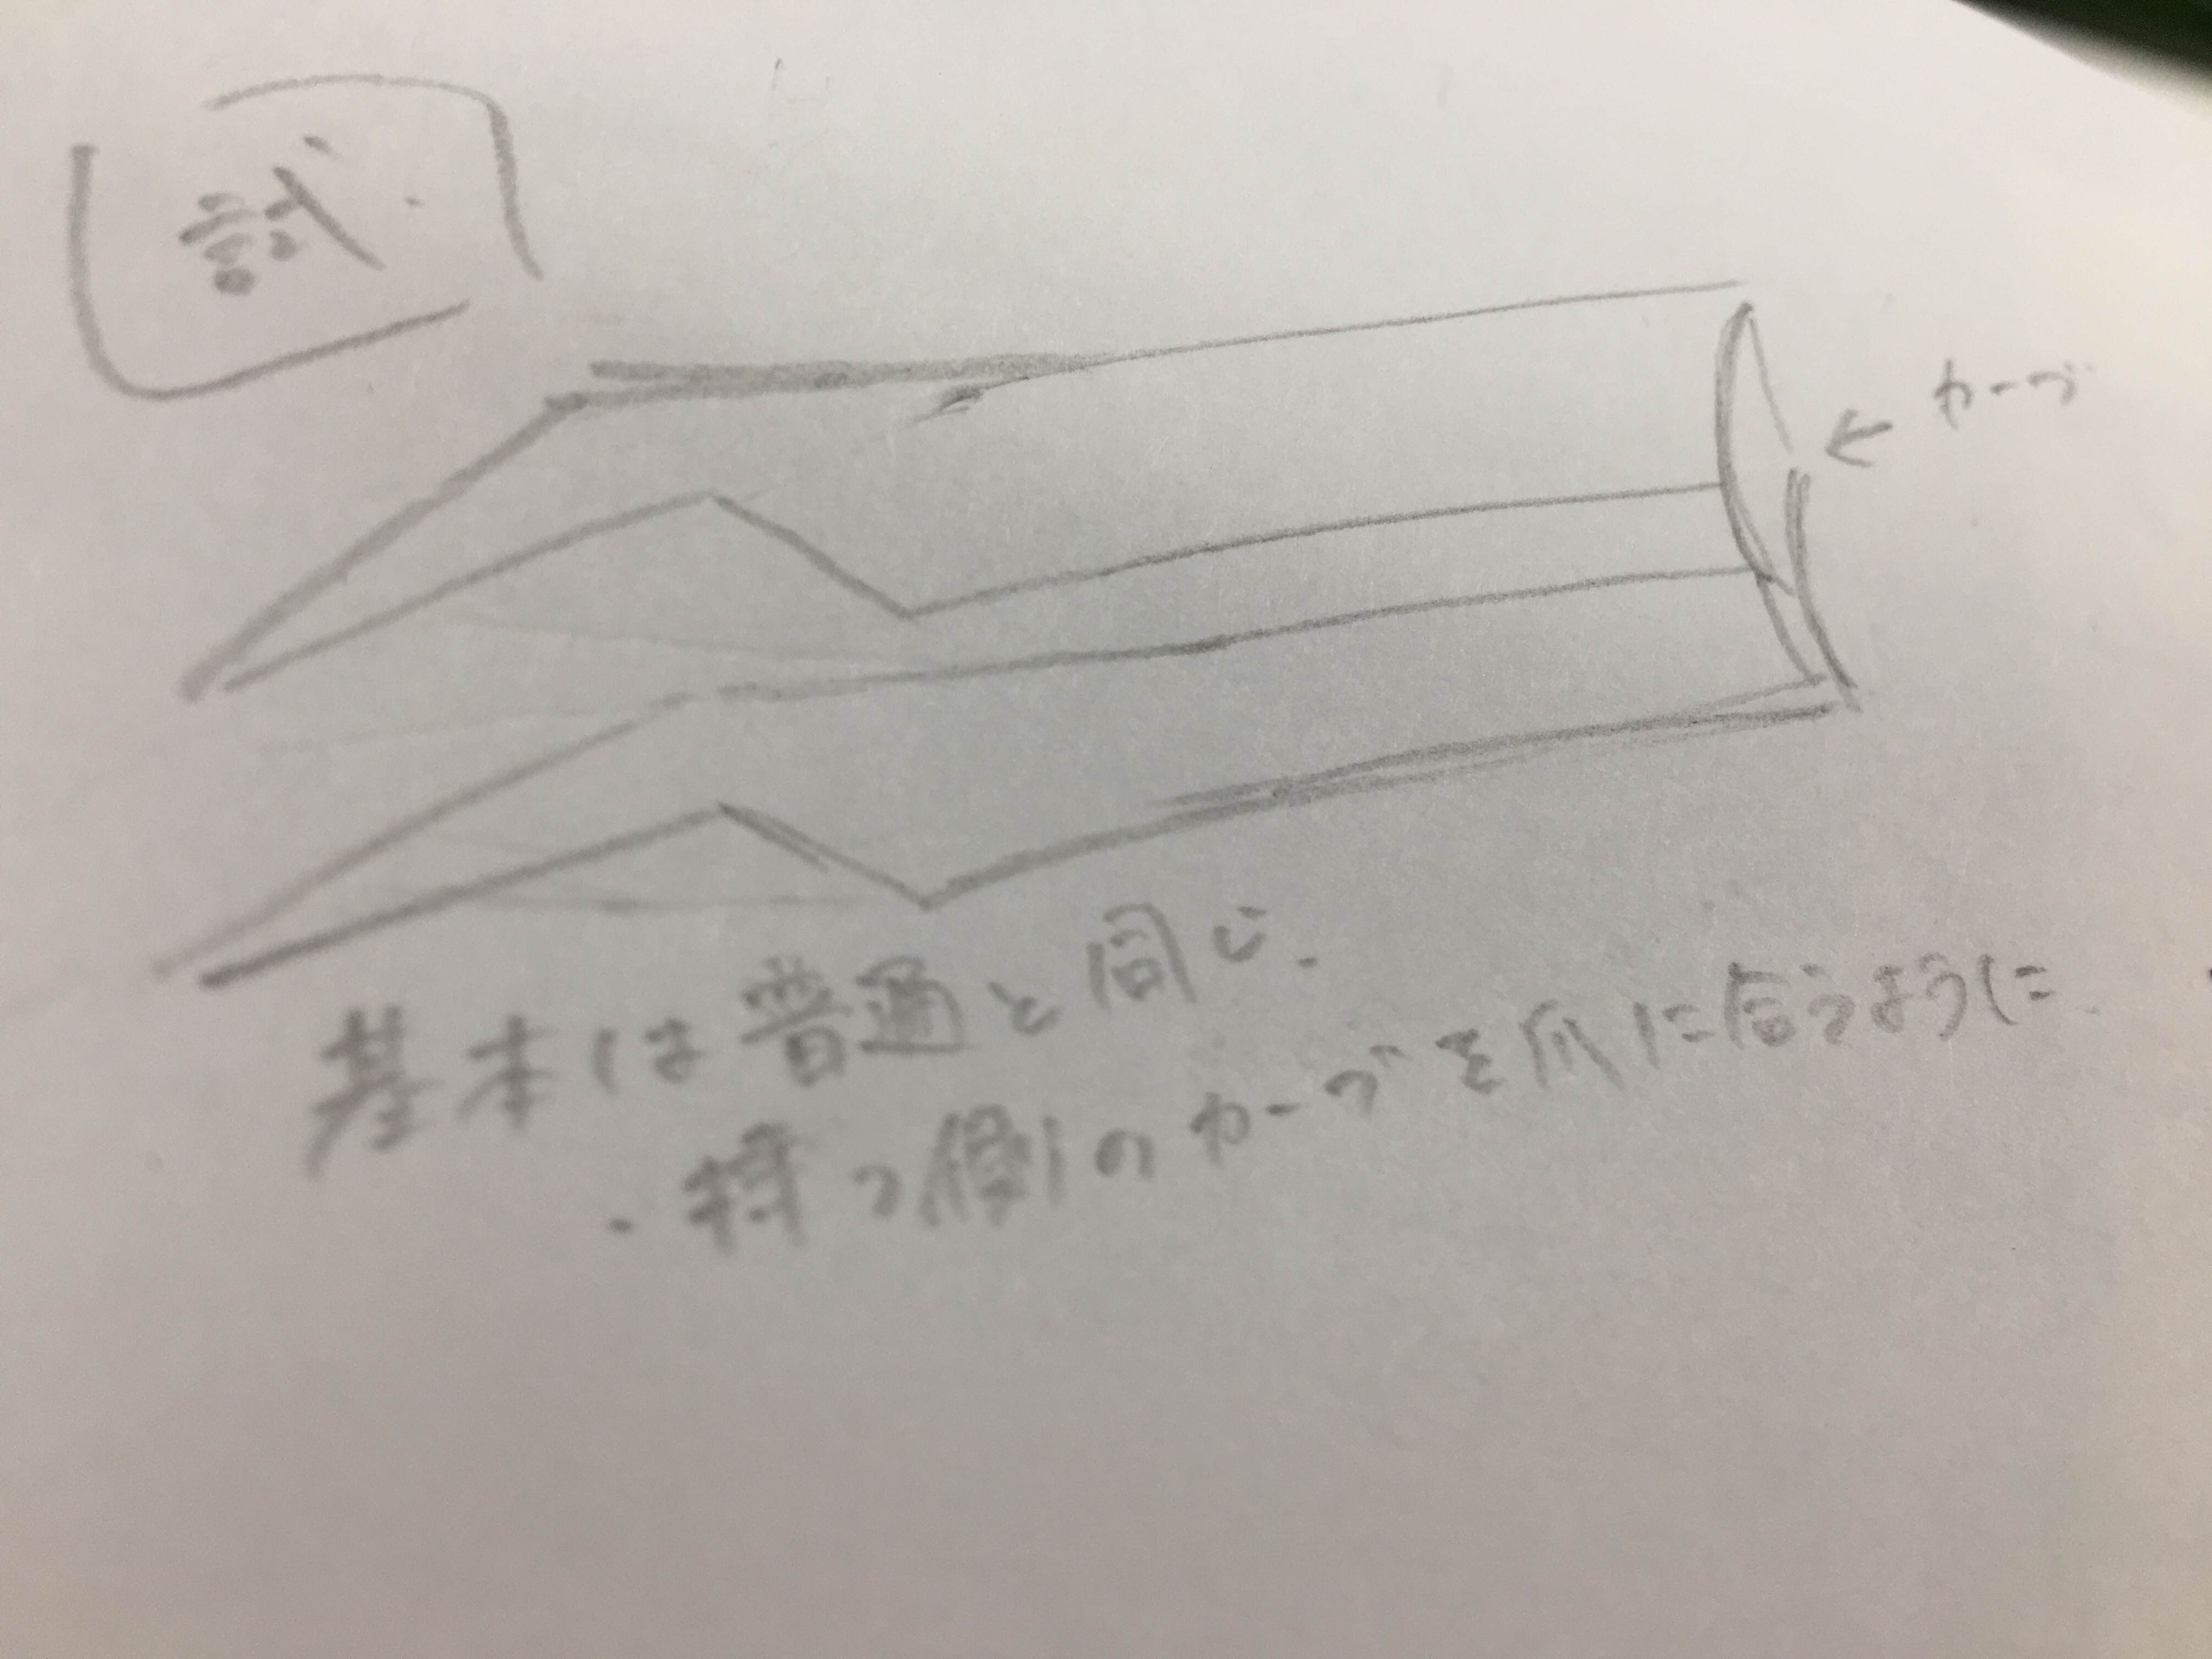 試
← カーブ
基本は普通と同じ.
・持つ側のカーブを爪に合うように.